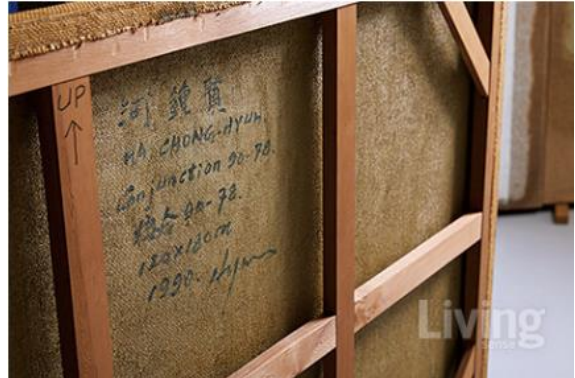 UP
↑
河 鍾 賢
HA, CHONG-HYUN.
Conjunction 90-78.
接合 90-78.
120X180cm
1990. Hyun
Living
sense